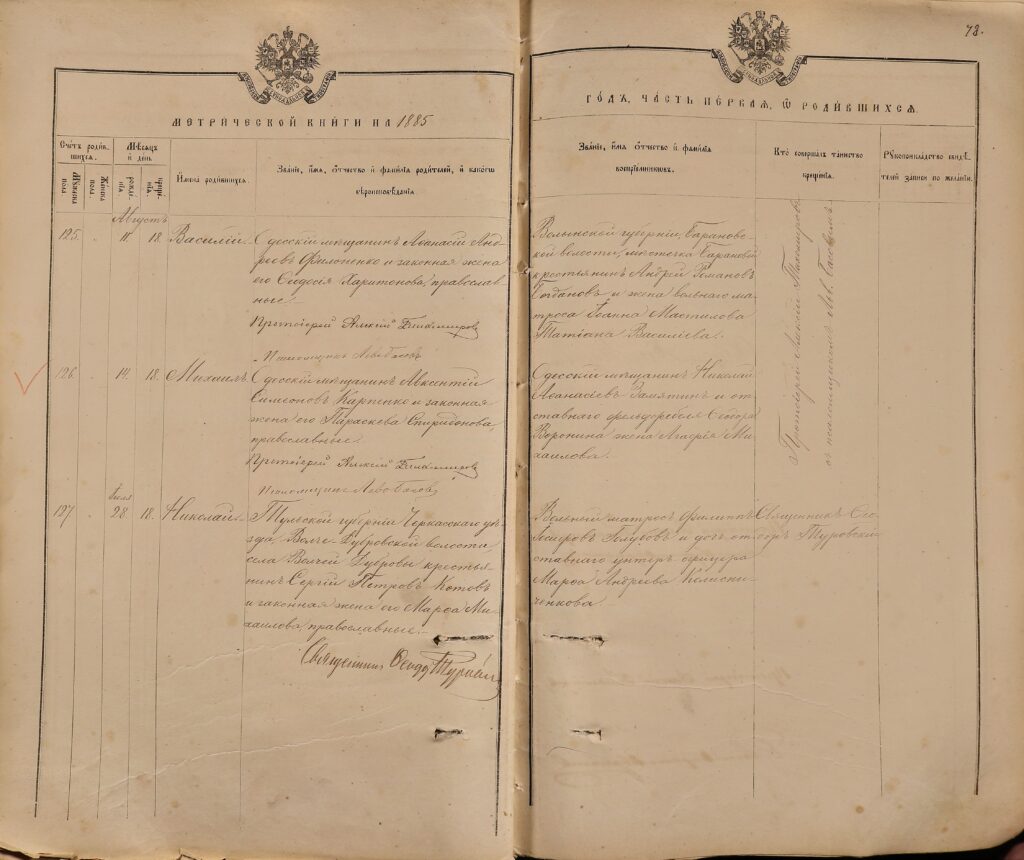 78.
МЕТРИЧЕСКОЙ КНИГИ НА 1885
ГОДЪ, ЧАСТЬ ПЕРВАЯ, Ѡ РОДИВШИХСЯ.
Счетъ родив-
шихся.
Мужеска
пола
Женска
пола.
Мѣсяцъ
и день.
рожде-
нія
креще-
нія.
Имена родившихся.
Званіе, имя, отчество и фамилія родителей, и какогѡ
вѣроисповѣданія.
Званіе, имя отчество и фамилія
воспріемниковъ.
Кто совершалъ таинство
крещенія.
Рукоприкладство свидѣ-
телей записи по желанію.
Августъ
125. 11. 18. Василій.
Одесскій мѣщанинъ Аѳанасій Анд-
реевъ Филопенко и законная жена
его Ѳеодосія Харитонова, православ-
ные.
Протоіерей Алексій
Псаломщикъ Левъ
Волынской губерніи, Барановс-
кой волости, мѣстечка Барановки
крестьянинъ Андрей Романовъ
Богдановъ и жена вольнаго ма-
троса Іоанна Мастилова
Татіана Василіева.
126. 14. 18. Михаилъ.
Одесскій мѣщанинъ Авксентій
Симеоновъ Карпенко и законная
жена его Параскева Спиридонова,
православные.
Протоіерей Алексій
Псаломщикъ Левъ
Одесскій мѣщанинъ Николай
Аѳанасіевъ Замятинъ и от-
ставнаго фельдфебеля Ѳеодора
Воронина жена Агафія Ми-
хаилова.
Протоіерей Алексій
съ псаломщикомъ Лев.
Іюля
127 28. 18. Николай.
Тульской губерніи Черкасскаго уѣ-
зда, Волче-Дубровской волости,
села Волчей Дубровы крестья-
нинъ Сергій Петровъ Котовъ
и законная жена его Марѳа Ми-
хаилова, православные.
Священникъ Ѳеодоръ Турскій
Вольный матросъ Филиппъ
Голубовъ и дочь от-
ставнаго унтеръ офицера
Марѳа Андреева
ченкова
Священникъ Ѳео-
доръ Туровскій